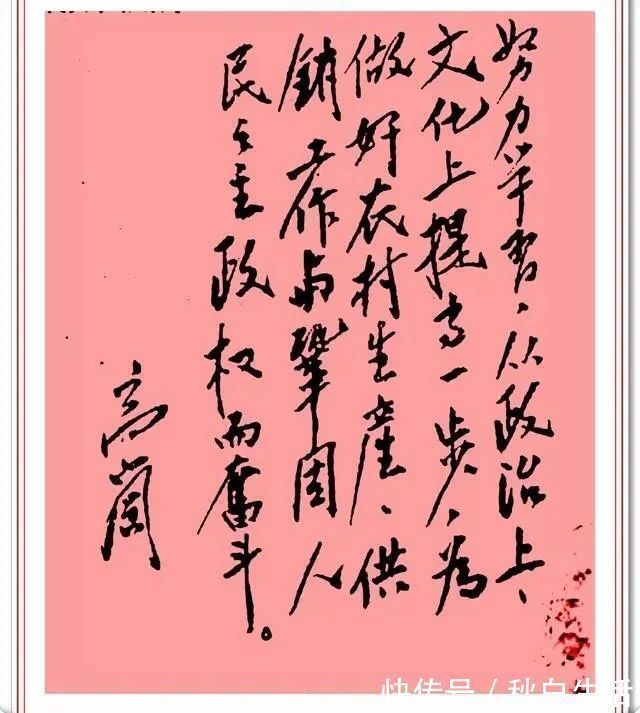 努力学習、从政治上、
文化上提高一步、为
做好农村生產、供
銷工作与鞏固人
民主政权而奮斗。
高崗
快传号/秋白生活